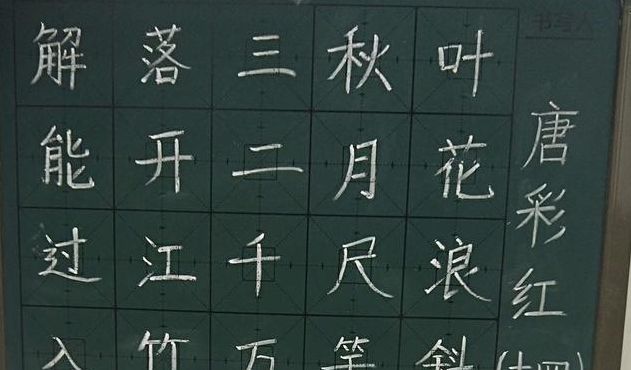 解落三秋叶
能开二月花
过江千尺浪
入竹万竿斜
书写人
唐彩红